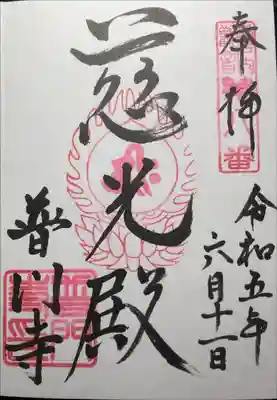 奉拝
慈光殿
令和五年
六月十一日
普門寺